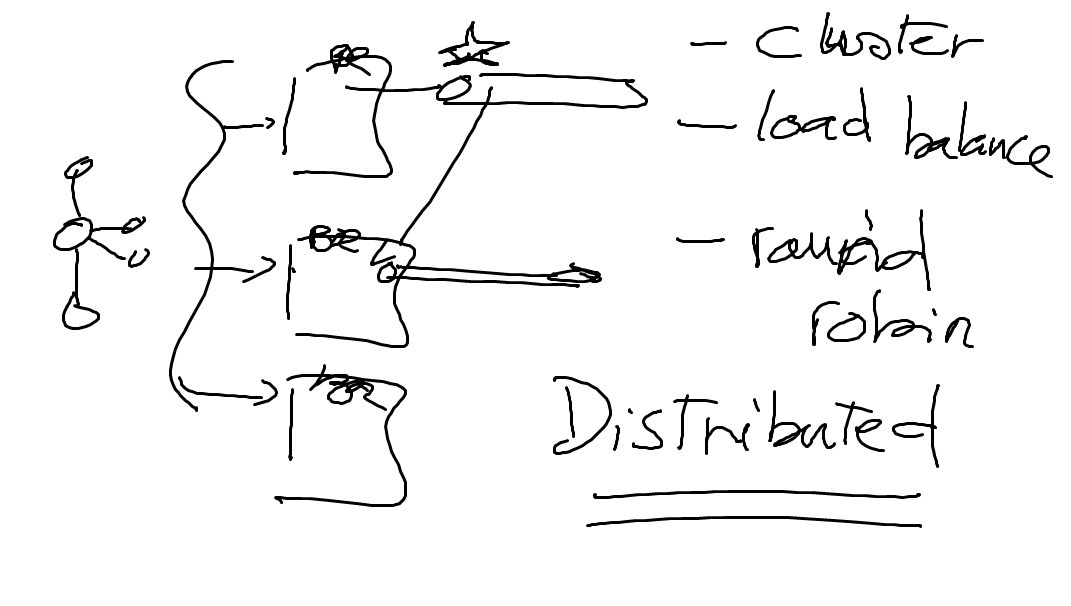 - cluster
- load balance
- round
robin
Distributed
BE